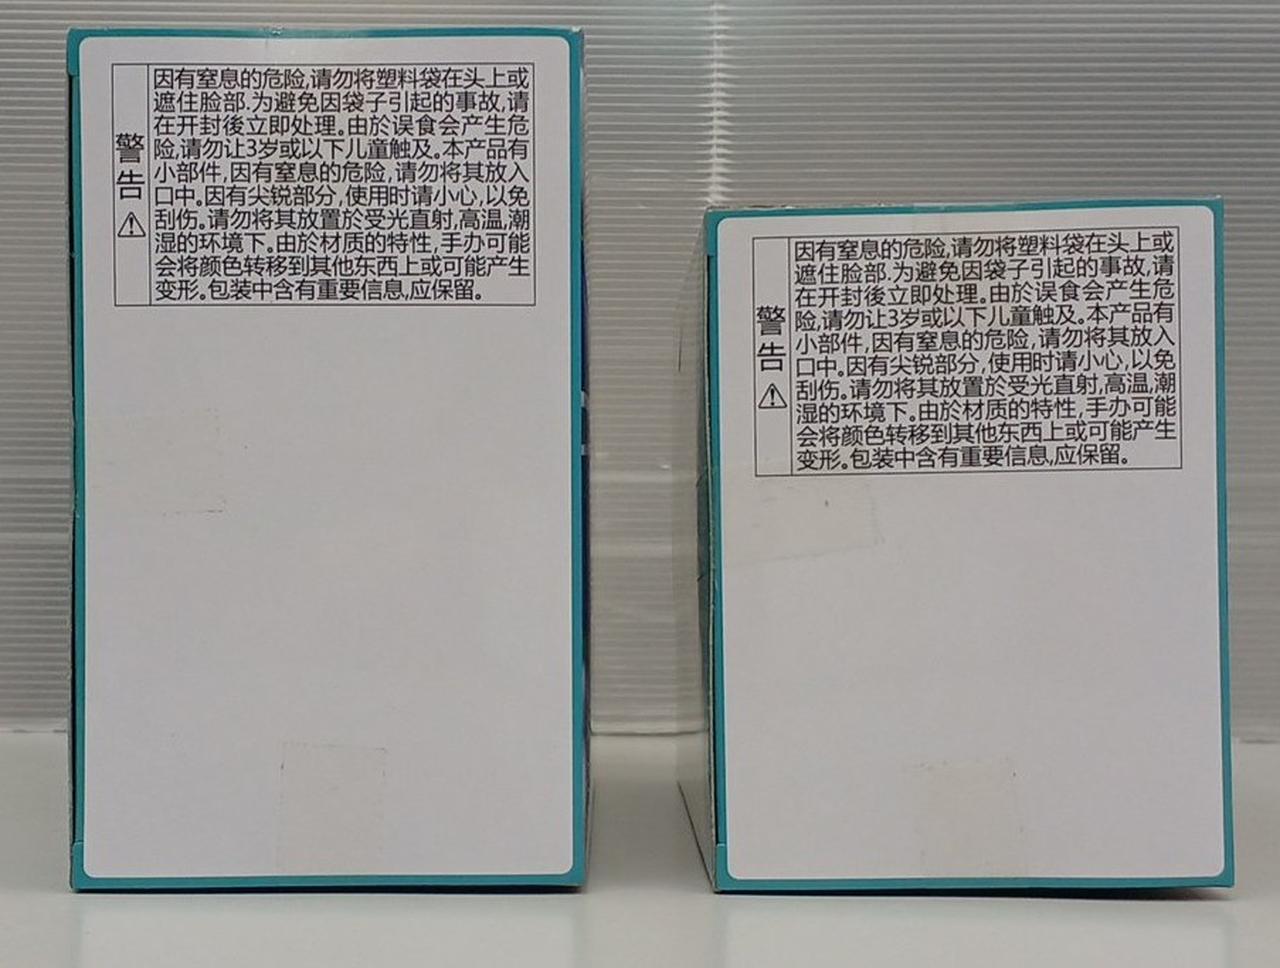 警告
因有窒息的危险,请勿将塑料袋在头上或
遮住脸部.为避免因袋子引起的事故,请
在开封後立即处理。由於误食会产生危
险,请勿让3岁或以下儿童触及。本产品有
小部件,因有窒息的危险,请勿将其放入
口中。因有尖锐部分,使用时请小心,以免
刮伤。请勿将其放置於受光直射,高温,潮
湿的环境下。由於材质的特性,手办可能
会将颜色转移到其他东西上或可能产生
变形。包装中含有重要信息,应保留。
警告
因有窒息的危险,请勿将塑料袋在头上或
遮住脸部.为避免因袋子引起的事故,请
在开封後立即处理。由於误食会产生危
险,请勿让3岁或以下儿童触及。本产品有
小部件,因有窒息的危险,请勿将其放入
口中。因有尖锐部分,使用时请小心,以免
刮伤。请勿将其放置於受光直射,高温,潮
湿的环境下。由於材质的特性,手办可能
会将颜色转移到其他东西上或可能产生
变形。包装中含有重要信息,应保留。